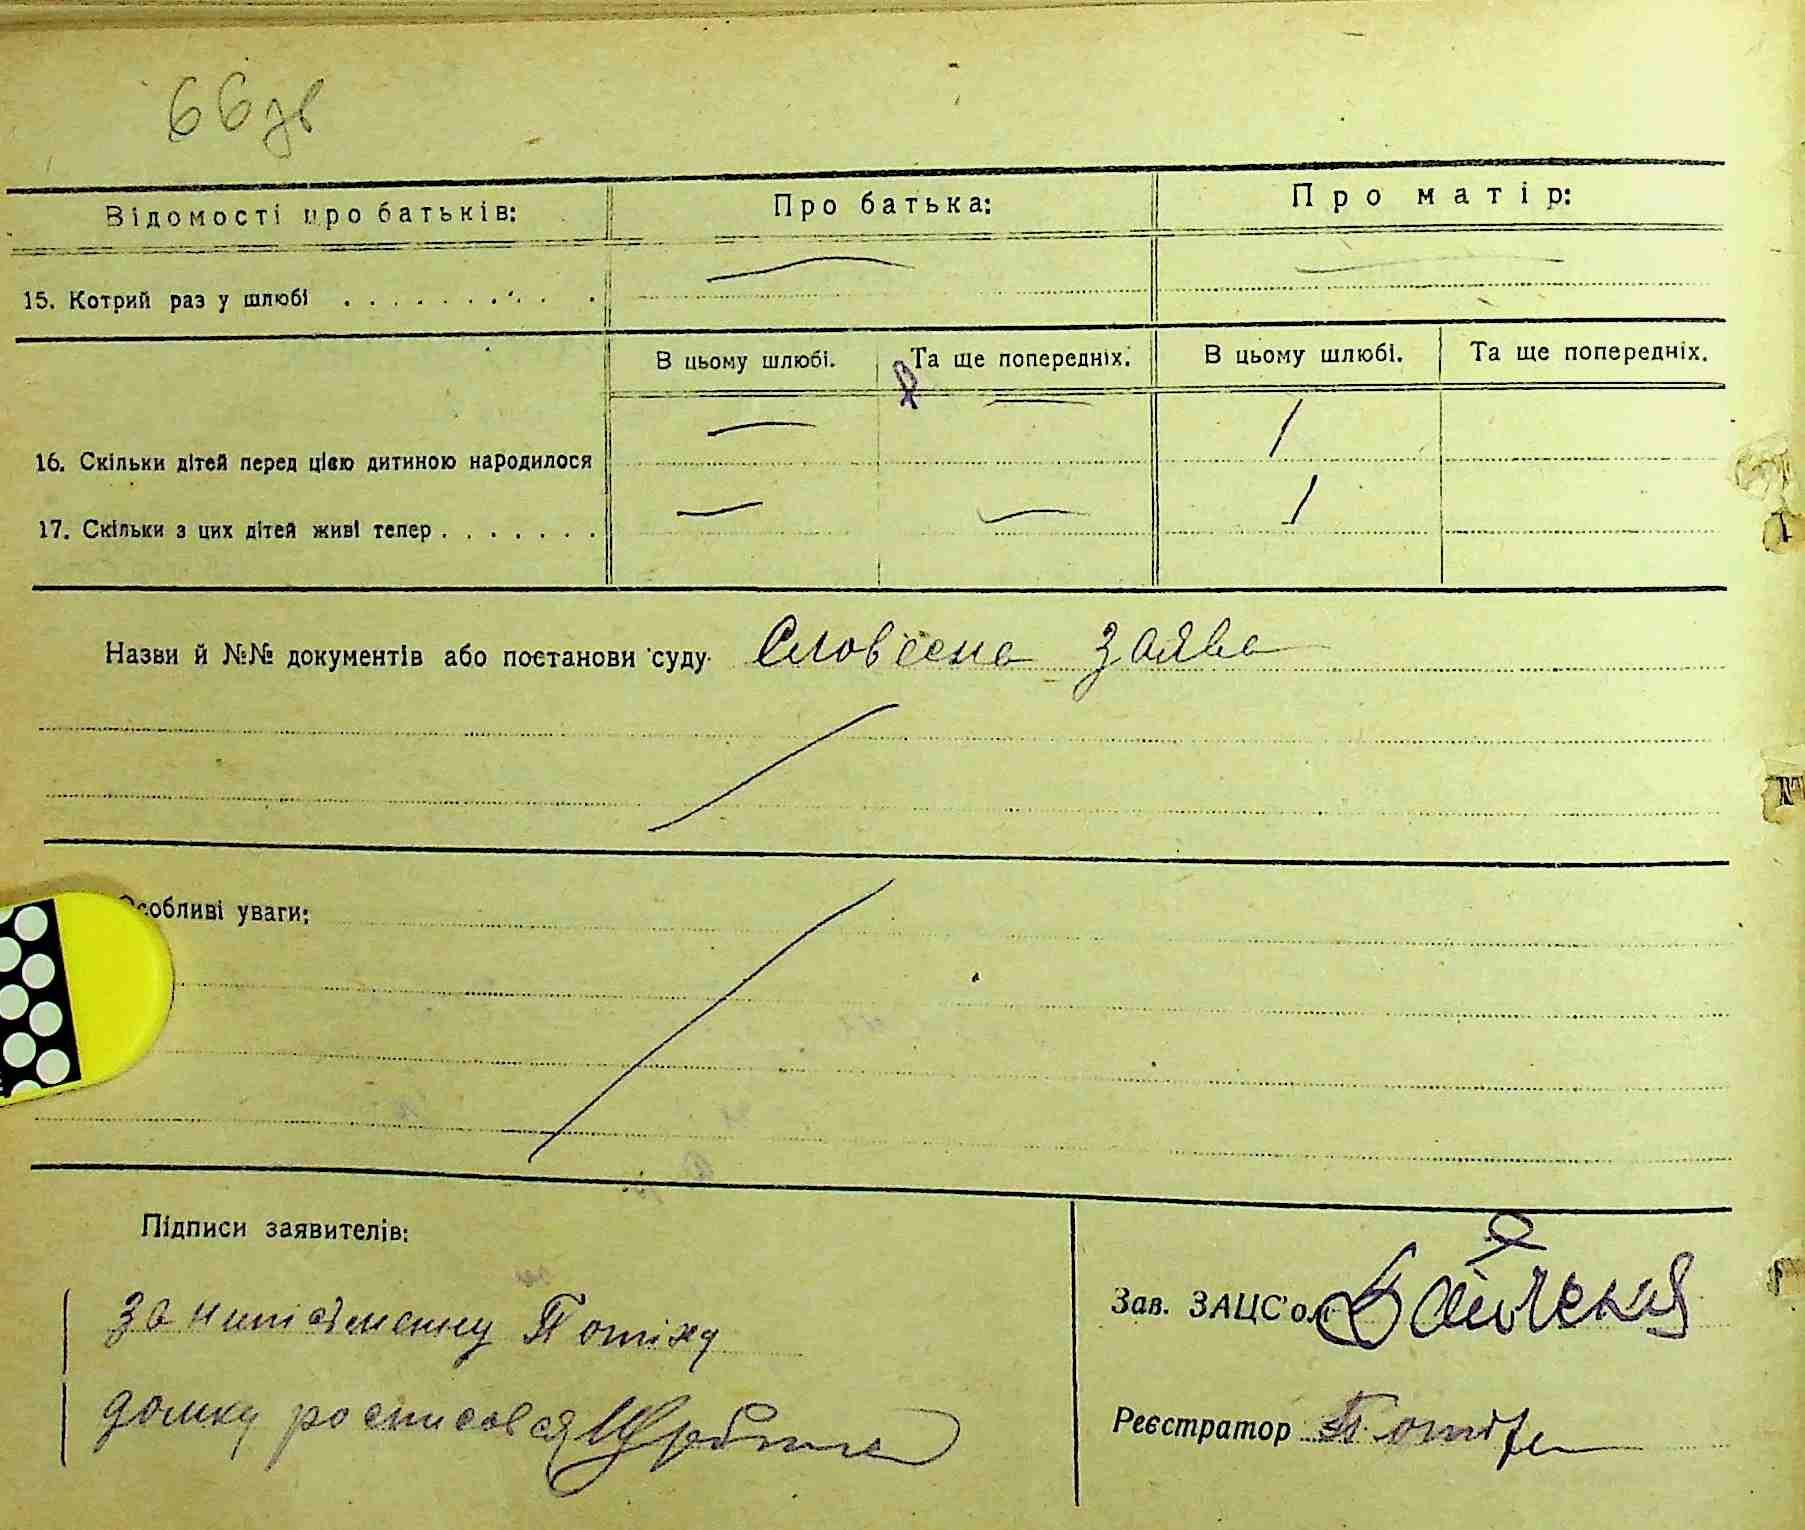 66 зв
Відомості про батьків: Про батька: Про матір:
15. Котрий раз у шлюбі . . . . . . . . . .
В цьому шлюбі. Та ще попередніх. В цьому шлюбі. Та ще попередніх.
16. Скільки дітей перед цією дитиною народилося — — 1
17. Скільки з цих дітей живі тепер . . . . . . . — — 1
Назви й №№ документів або постанови суду Словесна заява
Особливі уваги:
Підписи заявителів:
за нипісьменну Потіху
Зав. ЗАЦС'ом
домку росписався Щербина
Реєстратор Потіха